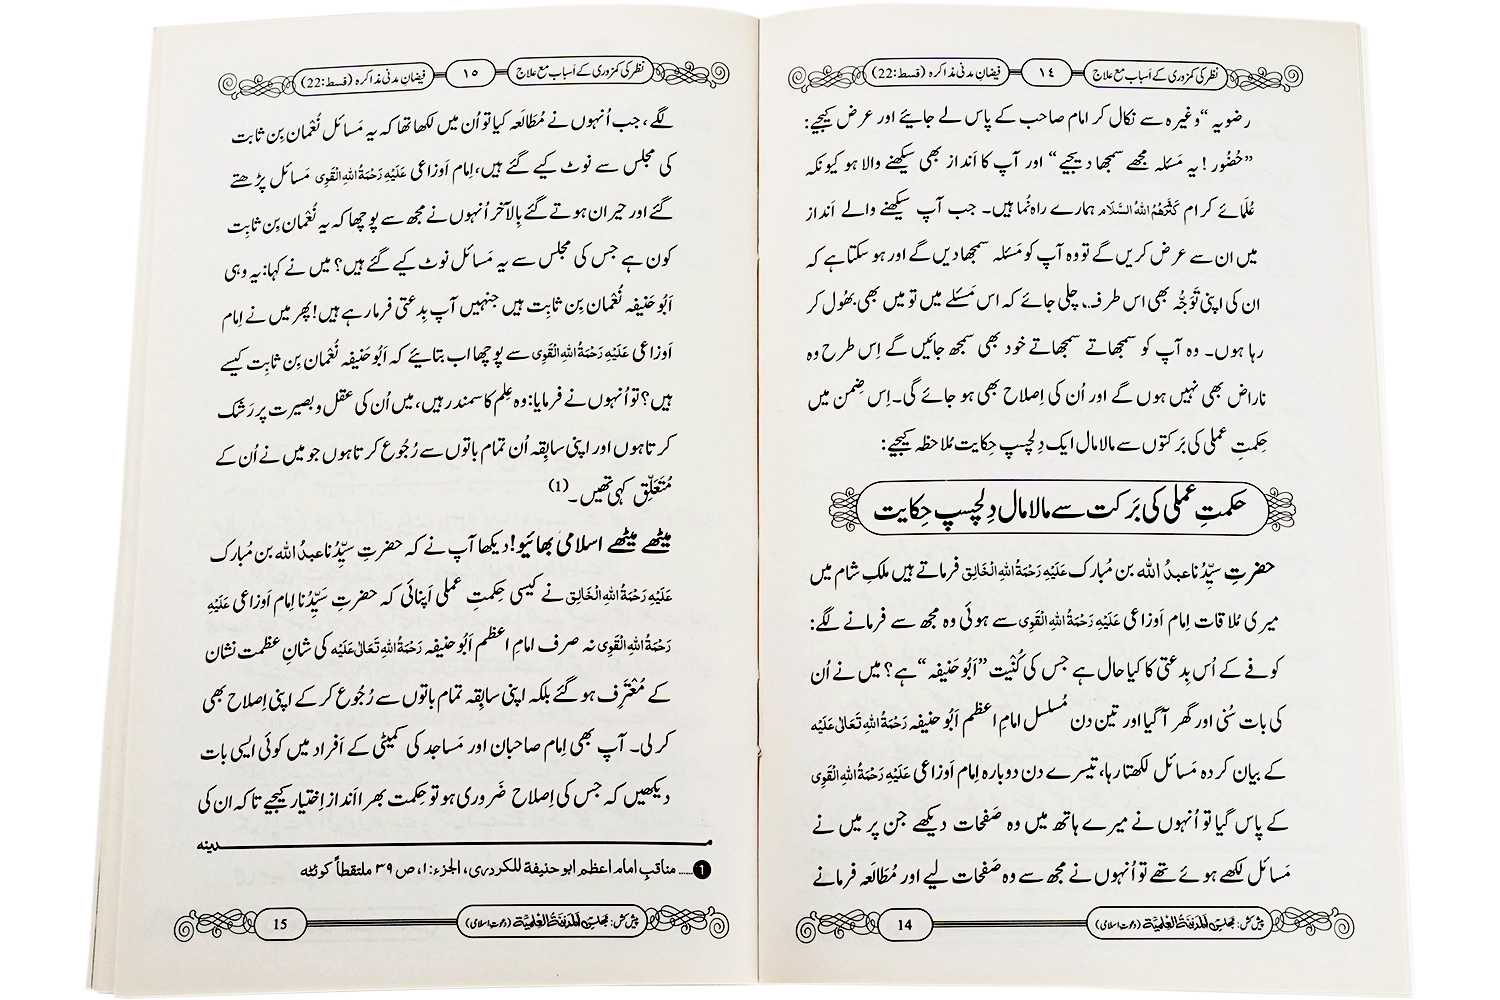 نظر کی کمزوری کے اَسباب مع علاج
١٤
فیضانِ مدنی مذاکرہ (قسط:22)
رضویہ“ وغیرہ سے نکال کر امام صاحب کے پاس لے جایئے اور عرض کیجیے:
”حُضُور! یہ مَسْئلہ مجھے سمجھا دیجیے“ اور آپ کا اَنداز بھی سیکھنے والا ہو کیونکہ
عُلَمائے کرام کَثَّرَھُمُ اللہُ السَّلَام ہمارے راہ نُما ہیں۔ جب آپ سیکھنے والے اَنداز
میں ان سے عرض کریں گے تو وہ آپ کو مَسْئلہ سمجھا دیں گے اور ہو سکتا ہے کہ
ان کی اپنی تَوَجُّہ بھی اس طرف چلی جائے کہ اس مَسْئلے میں تو میں بھی بھُول کر
رہا ہوں۔ وہ آپ کو سمجھاتے سمجھاتے خود بھی سمجھ جائیں گے اِس طرح وہ
ناراض بھی نہیں ہوں گے اور اُن کی اِصلاح بھی ہو جائے گی۔ اِس ضِمن میں
حِکمتِ عملی کی بَرَکتوں سے مالامال ایک دِلچسپ حِکایت مُلاحظہ کیجیے:
حکمتِ عملی کی بَرَکت سے مالامال دِلچسپ حِکایت
حضرتِ سیِّدُنا عبدُ اللہ بن مُبارک عَلَیْہِ رَحْمَۃُ اللہِ الْخَالِق فرماتے ہیں ملکِ شام میں
میری مُلاقات اِمام اَوزاعی عَلَیْہِ رَحْمَۃُ اللہِ الْقَوِی سے ہوئی وہ مجھ سے فرمانے لگے:
کوفے کے اُس بِدعتی کا کیا حال ہے جس کی کُنْیَت ”اَبُو حَنیفہ“ ہے؟ میں نے اُن
کی بات سُنی اور گھر آگیا اور تین دن مُسلسل امامِ اعظم اَبُو حنیفہ رَحْمَۃُ اللہِ تَعَالٰی عَلَیْہ
کے بیان کردہ مَسائل لکھتا رہا، تیسرے دن دوبارہ اِمام اَوزاعی عَلَیْہِ رَحْمَۃُ اللہِ الْقَوِی
کے پاس گیا تو اُنہوں نے میرے ہاتھ میں وہ صَفحات دیکھے جن پر میں نے
مَسائل لکھے ہوئے تھے تو اُنہوں نے مجھ سے وہ صَفحات لیے اور مُطالَعہ فرمانے
پیش کش: مجلس المدینۃ العلمیۃ (دعوتِ اسلامی)
14
نظر کی کمزوری کے اَسباب مع علاج
١٥
فیضانِ مدنی مذاکرہ (قسط:22)
لگے، جب اُنہوں نے مُطالَعہ کیا تو اُن میں لکھا تھا کہ یہ مَسائل نُعْمان بِن ثابت
کی مجلس سے نوٹ کیے گئے ہیں، اِمام اَوزاعی عَلَیْہِ رَحْمَۃُ اللہِ الْقَوِی مَسائل پڑھتے
گئے اور حیران ہوتے گئے بِالآخر اُنہوں نے مجھ سے پوچھا کہ یہ نُعْمان بِن ثابِت
کون ہے جس کی مجلس سے یہ مَسائل نوٹ کیے گئے ہیں؟ میں نے کہا: یہ وہی
اَبُو حَنیفہ نُعْمان بِن ثابِت ہیں جنہیں آپ بِدعتی فرما رہے ہیں! پھر میں نے اِمام
اَوزاعی عَلَیْہِ رَحْمَۃُ اللہِ الْقَوِی سے پوچھا اب بتائیے کہ اَبُو حَنیفہ نُعْمان بِن ثابِت کیسے
ہیں؟ تو اُنہوں نے فرمایا: وہ عِلم کا سمندر ہیں، میں اُن کی عقل و بصیرت پر رَشک
کرتا ہوں اور اپنی سابِقہ اُن تمام باتوں سے رُجُوع کرتا ہوں جو میں نے اُن کے
مُتَعَلِّق کہی تھیں۔(1)
میٹھے میٹھے اسلامی بھائیو! دیکھا آپ نے کہ حضرتِ سیِّدُنا عبدُ اللہ بن مُبارک
عَلَیْہِ رَحْمَۃُ اللہِ الْخَالِق نے کیسی حِکمتِ عملی اَپنائی کہ حضرتِ سَیِّدُنا اِمام اَوزاعی عَلَیْہِ
رَحْمَۃُ اللہِ الْقَوِی نہ صرف امامِ اعظم اَبُو حنیفہ رَحْمَۃُ اللہِ تَعَالٰی عَلَیْہ کی شانِ عظمت نشان
کے مُعْتَرِف ہو گئے بلکہ اپنی سابِقہ تمام باتوں سے رُجُوع کر کے اپنی اِصلاح بھی
کر لی۔ آپ بھی اِمام صاحبان اور مَساجد کی کمیٹی کے اَفراد میں کوئی ایسی بات
دیکھیں کہ جس کی اِصلاح ضَروری ہو تو حِکمت بھرا اَنداز اِختیار کیجیے تاکہ ان کی
مـــدینہ
1 ..... مناقبِ امام اعظم ابو حنیفۃ للکردری، الجزء: ١، ص ٣٩ ملتقطاً کوئٹہ
پیش کش: مجلس المدینۃ العلمیۃ (دعوتِ اسلامی)
15